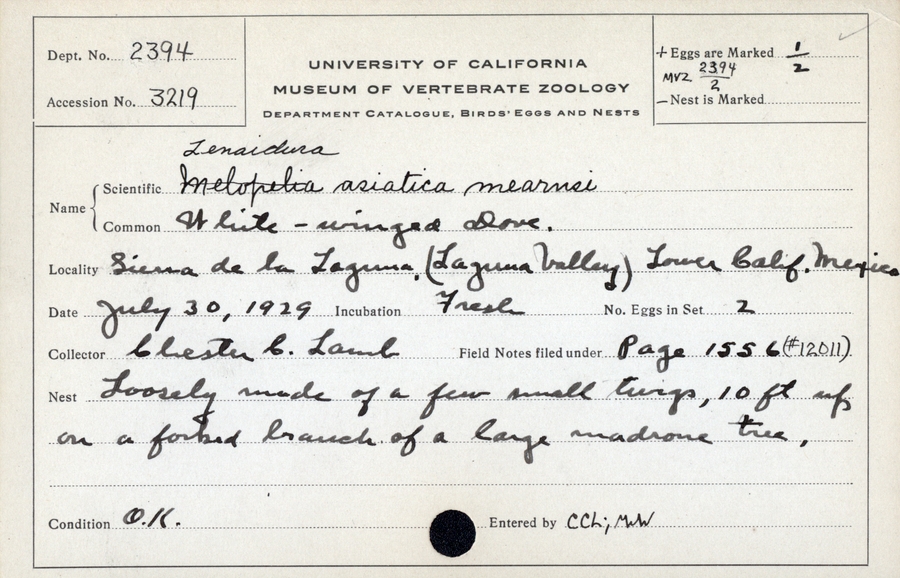 Dept. No. 2394
Accession No. 3219
UNIVERSITY OF CALIFORNIA
MUSEUM OF VERTEBRATE ZOOLOGY
DEPARTMENT CATALOGUE, BIRDS' EGGS AND NESTS
+ Eggs are Marked 1/2
MVZ 2394/2
– Nest is Marked
Zenaidura
Name { Scientific Melopelia asiatica mearnsi
Common White-winged Dove.
Locality Sierra de la Laguna, (Laguna Valley) Lower Calif. Mexico
Date July 30, 1929 Incubation Fresh No. Eggs in Set 2
Collector Chester C. Lamb Field Notes filed under Page 1556 (#12011)
Nest Loosely made of a few small twigs, 10 ft up
on a forked branch of a large madrone tree,
Condition O.K. Entered by CCL; MWW